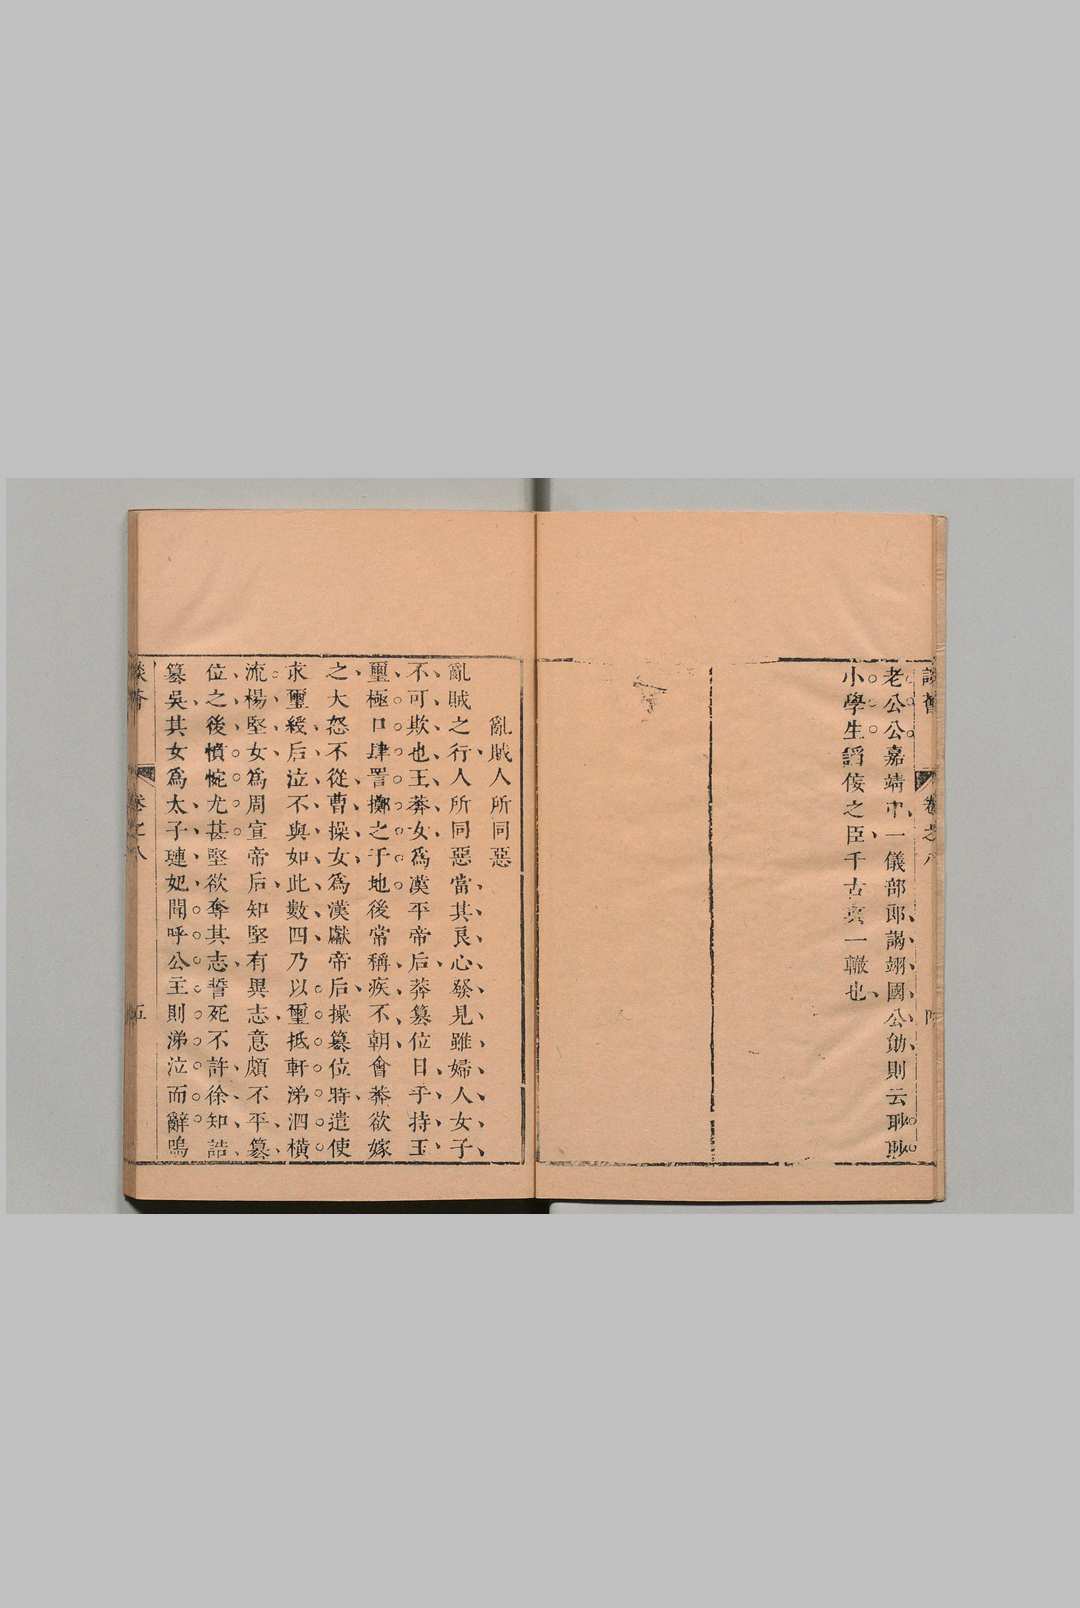 老公公嘉靖中一儀部郎謁翊國公勛則云耿耿
小學生謟佞之臣千古眞一轍也
亂賊人所同惡
亂賊之行人所同惡當其良心發見雖婦人女子
不可欺也王莽女爲漢平帝后莽篡位日手持玉
璽極口肆詈擲之于地後常稱疾不朝會莽欲嫁
之大怒不從曹操女爲漢獻帝后操篡位時遣使
求璽綬后泣不與如此數四乃以璽抵軒涕泗橫
流楊堅女爲周宣帝后知堅有異志意頗不平篡
位之後憤惋尤甚堅欲奪其志誓死不許徐知誥
篡吳其女爲太子璉妃聞呼公主則涕泣而辭嗚
卷之八
五